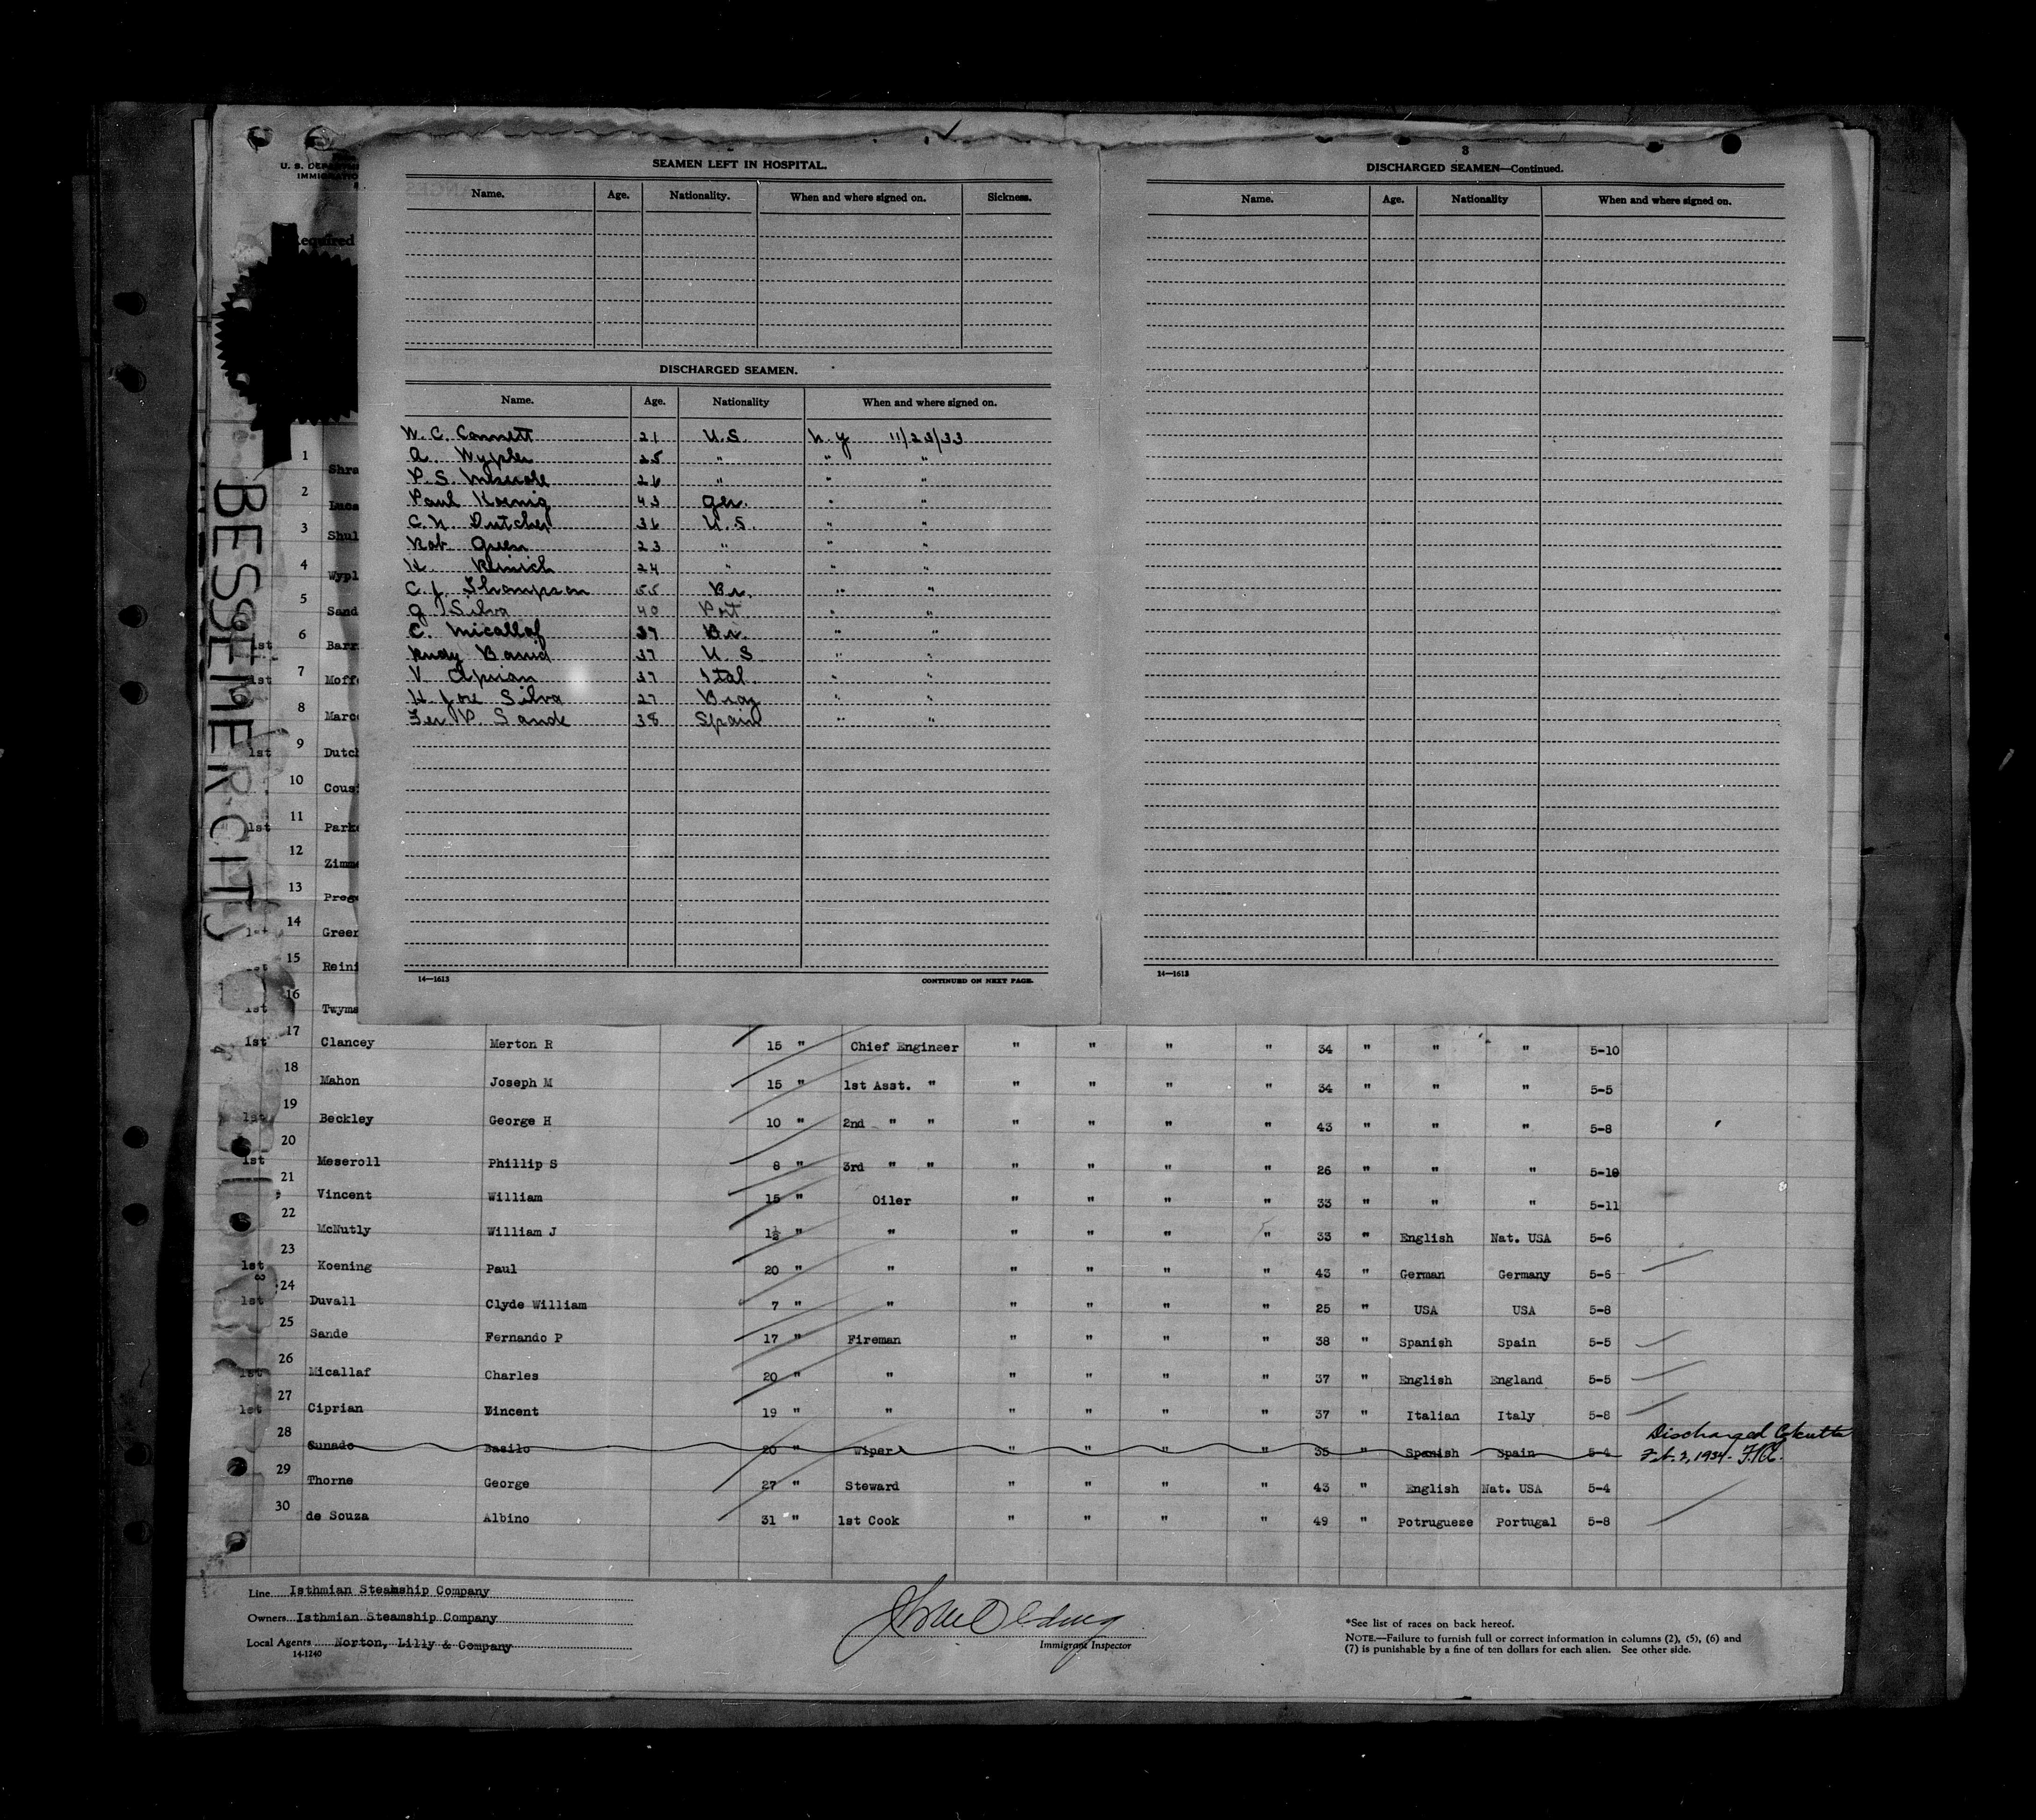 U. S. DEPARTM
IMMIGRATIO
Required
BESSEMER CITY
SEAMEN LEFT IN HOSPITAL.
Name. Age. Nationality. When and where signed on. Sickness.
DISCHARGED SEAMEN.
Name. Age. Nationality When and where signed on.
W. C. Connett 21 U.S. N.Y 11/23/33
A. Wypler 25 " " "
P. S. Meserole 26 " " "
Paul Koenig 43 Ger. " "
C. N. Dutcher 36 U.S. " "
Rob Green 23 " " "
H. 24 " " "
C. J. Thompson 55 Br. " "
J Silva 40 Port. " "
C. Micallaf 37 Br. " "
Rudy 37 U. S " "
V. Ciprian 37 Ital. " "
H. Jose Silva 27 Braz " "
Fer P. Sande 38 Spain " "
14—1613 CONTINUED ON NEXT PAGE.
3
DISCHARGED SEAMEN—Continued.
Name. Age. Nationality When and where signed on.
14—1613
1 Shra
2 Luca
3 Shul
4 Wypl
5 Sand
1st 6 Barr
1st 7 Moff
8 Marc
1st 9 Dutch
10 Cous
1st 11 Park
12 Zimm
13 Prog
1st 14 Green
1st 15 Reini
1st 16 Twyma
1st 17 Clancey Merton R 15 " Chief Engineer " " " " 34 " " " 5-10
18 Mahon Joseph M 15 " 1st Asst. " " " " " 34 " " " 5-5
1st 19 Beckley George H 10 " 2nd " " " " " " 43 " " " 5-8
1st 20 Meseroll Phillip S 8 " 3rd " " " " " " 26 " " " 5-10
21 Vincent William 15 " Oiler " " " " 33 " " " 5-11
22 McNutly William J 1½ " " " " " " 33 " English Nat. USA 5-6
1st 23 Koening Paul 20 " " " " " " 43 " German Germany 5-6
1st 24 Duvall Clyde William 7 " " " " " " 25 " USA USA 5-8
25 Sande Fernando P 17 " Fireman " " " " 38 " Spanish Spain 5-5
1st 26 Micallaf Charles 20 " " " " " " 37 " English England 5-5
1st 27 Ciprian Vincent 19 " " " " " " 37 " Italian Italy 5-8
28 Cunado Basilo 20 " Wiper " " " " 35 " Spanish Spain 5-4 Discharged Calcutta
Feb. 3, 1934
29 Thorne George 27 " Steward " " " " 43 " English Nat. USA 5-4
30 de Souza Albino 31 " 1st Cook " " " " 49 " Potruguese Portugal 5-8
Line Isthmian Steamship Company
Owners Isthmian Steamship Company
Local Agents Norton, Lilly & Company
14-1240
Immigrant Inspector
*See list of races on back hereof.
NOTE.—Failure to furnish full or correct information in columns (2), (5), (6) and
(7) is punishable by a fine of ten dollars for each alien. See other side.